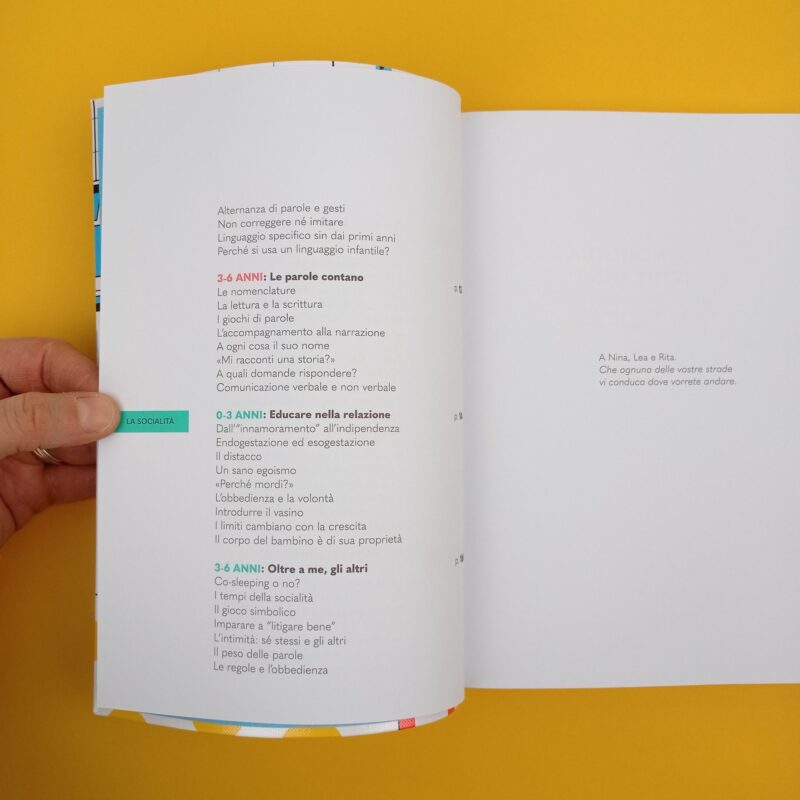 Alternanza di parole e gesti
Non correggere né imitare
Linguaggio specifico sin dai primi anni
Perché si usa un linguaggio infantile?
3-6 ANNI: Le parole contano
Le nomenclature
La lettura e la scrittura
I giochi di parole
L'accompagnamento alla narrazione
A ogni cosa il suo nome
«Mi racconti una storia?»
A quali domande rispondere?
Comunicazione verbale e non verbale
LA SOCIALITÀ
0-3 ANNI: Educare nella relazione
Dall'"innamoramento" all'indipendenza
Endogestazione ed esogestazione
Il distacco
Un sano egoismo
«Perché mordi?»
L'obbedienza e la volontà
Introdurre il vasino
I limiti cambiano con la crescita
Il corpo del bambino è di sua proprietà
3-6 ANNI: Oltre a me, gli altri
Co-sleeping o no?
I tempi della socialità
Il gioco simbolico
Imparare a "litigare bene"
L'intimità: sé stessi e gli altri
Il peso delle parole
Le regole e l'obbedienza
p.
p.
p.
A Nina, Lea e Rita.
Che ognuna delle vostre strade
vi conduca dove vorrete andare.